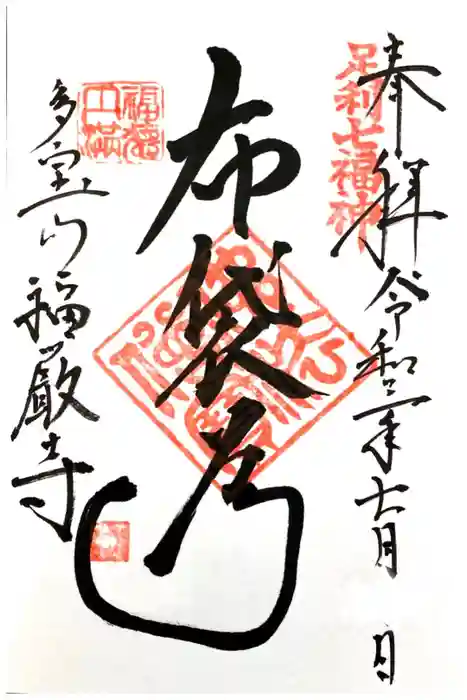 足利七福神
奉拝 令和二年 月 日
布袋尊
福寿
円満
多宝山 福厳寺